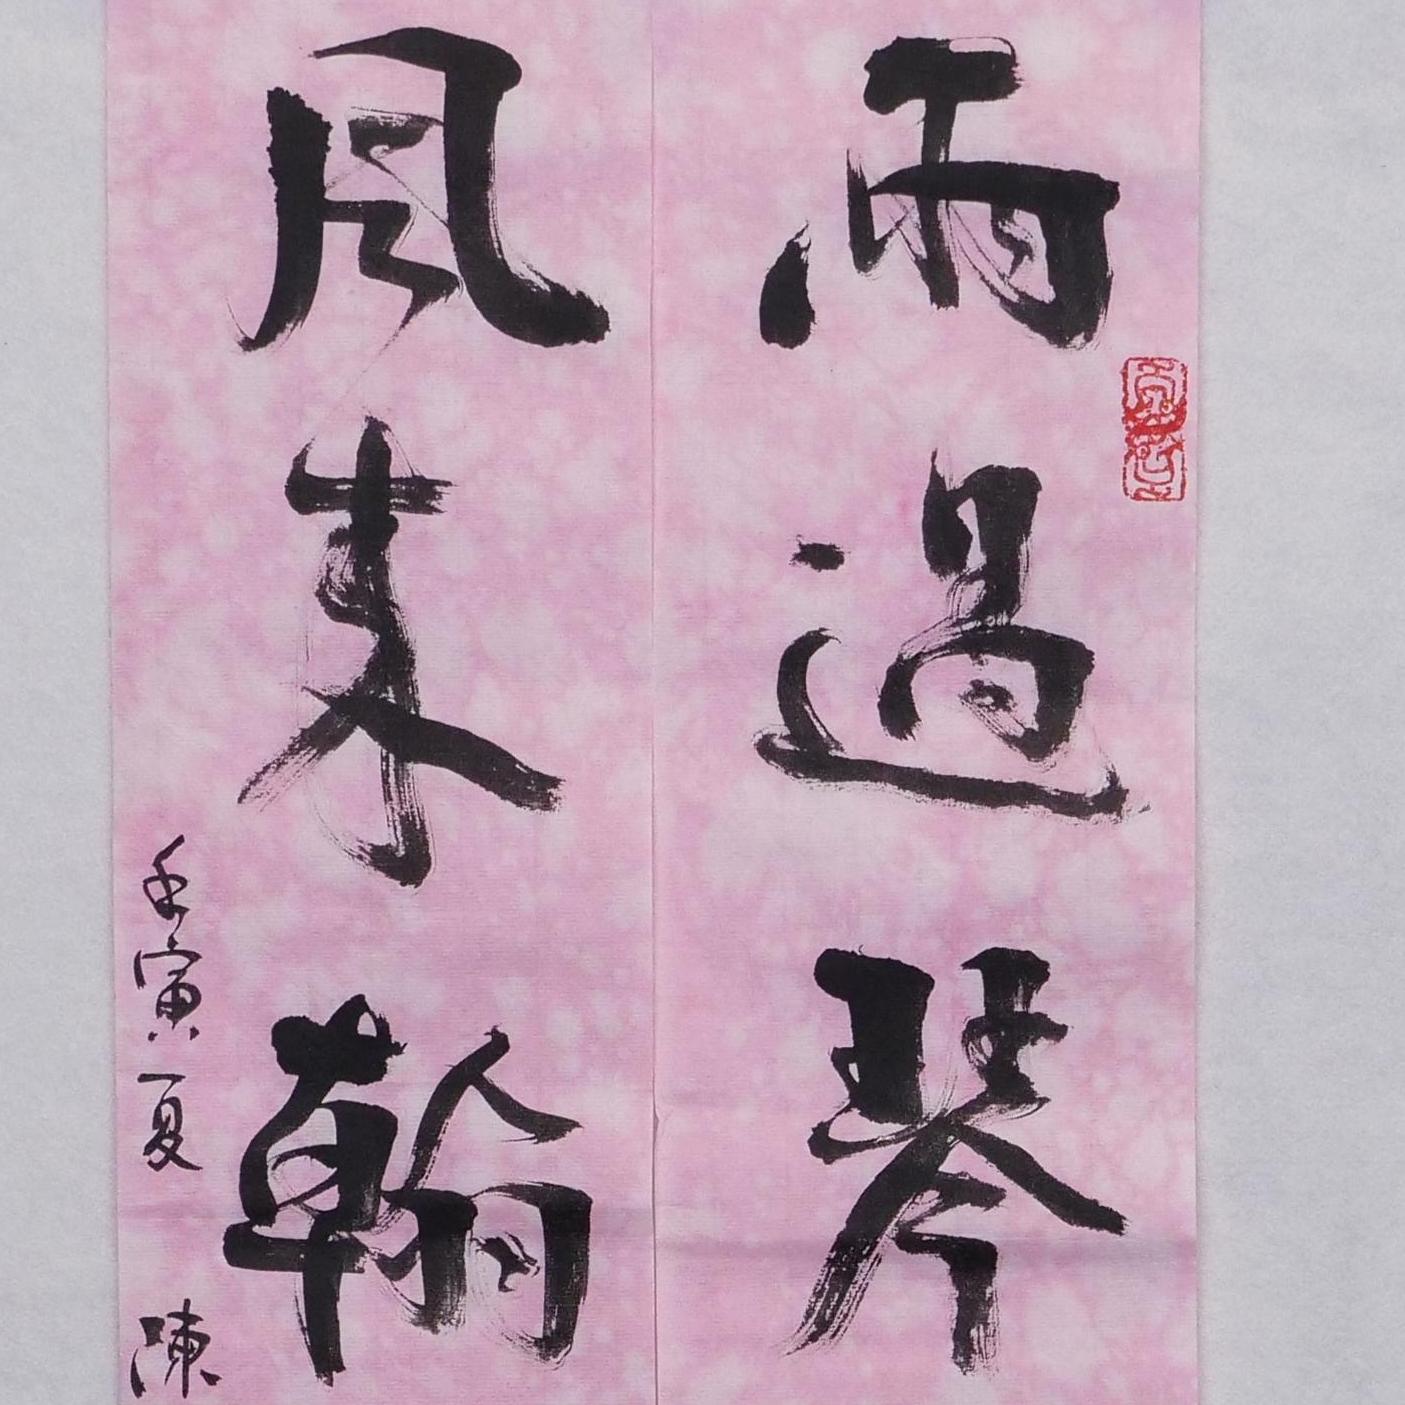 雨過琴
風来翰
壬寅夏 陳